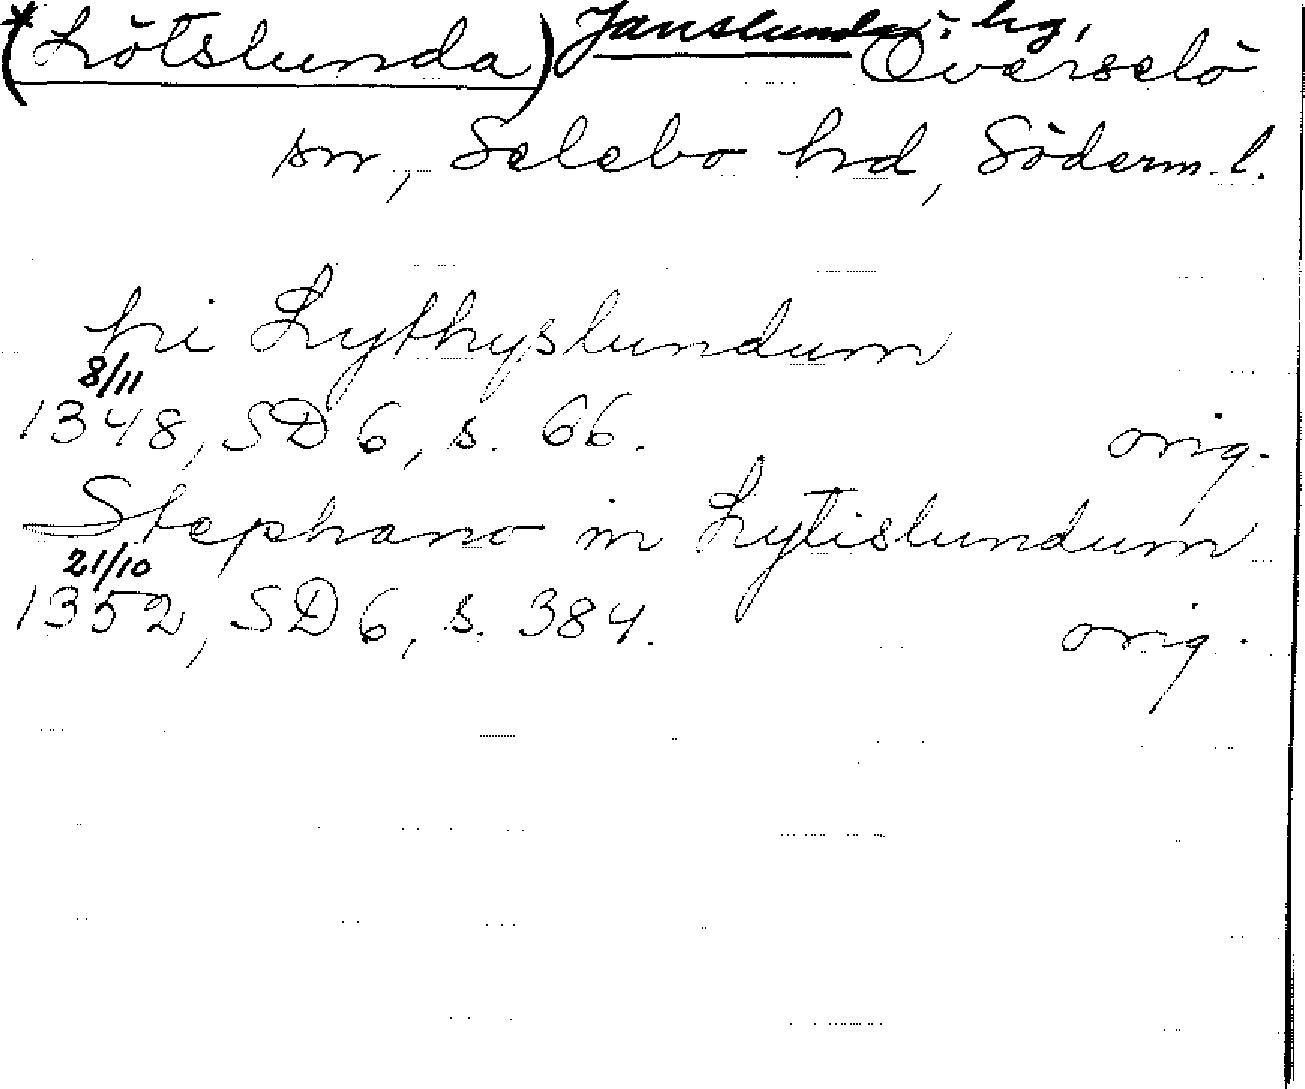 *(Lötslunda) Janslunda, hg, Överselö
sn, Selebo hd, Söderm. l.
hi Lythyslundum
8/11
1348, SD 6, s. 66. orig.
Stephano in Lytislundum
21/10
1352, SD 6, s. 384. orig.